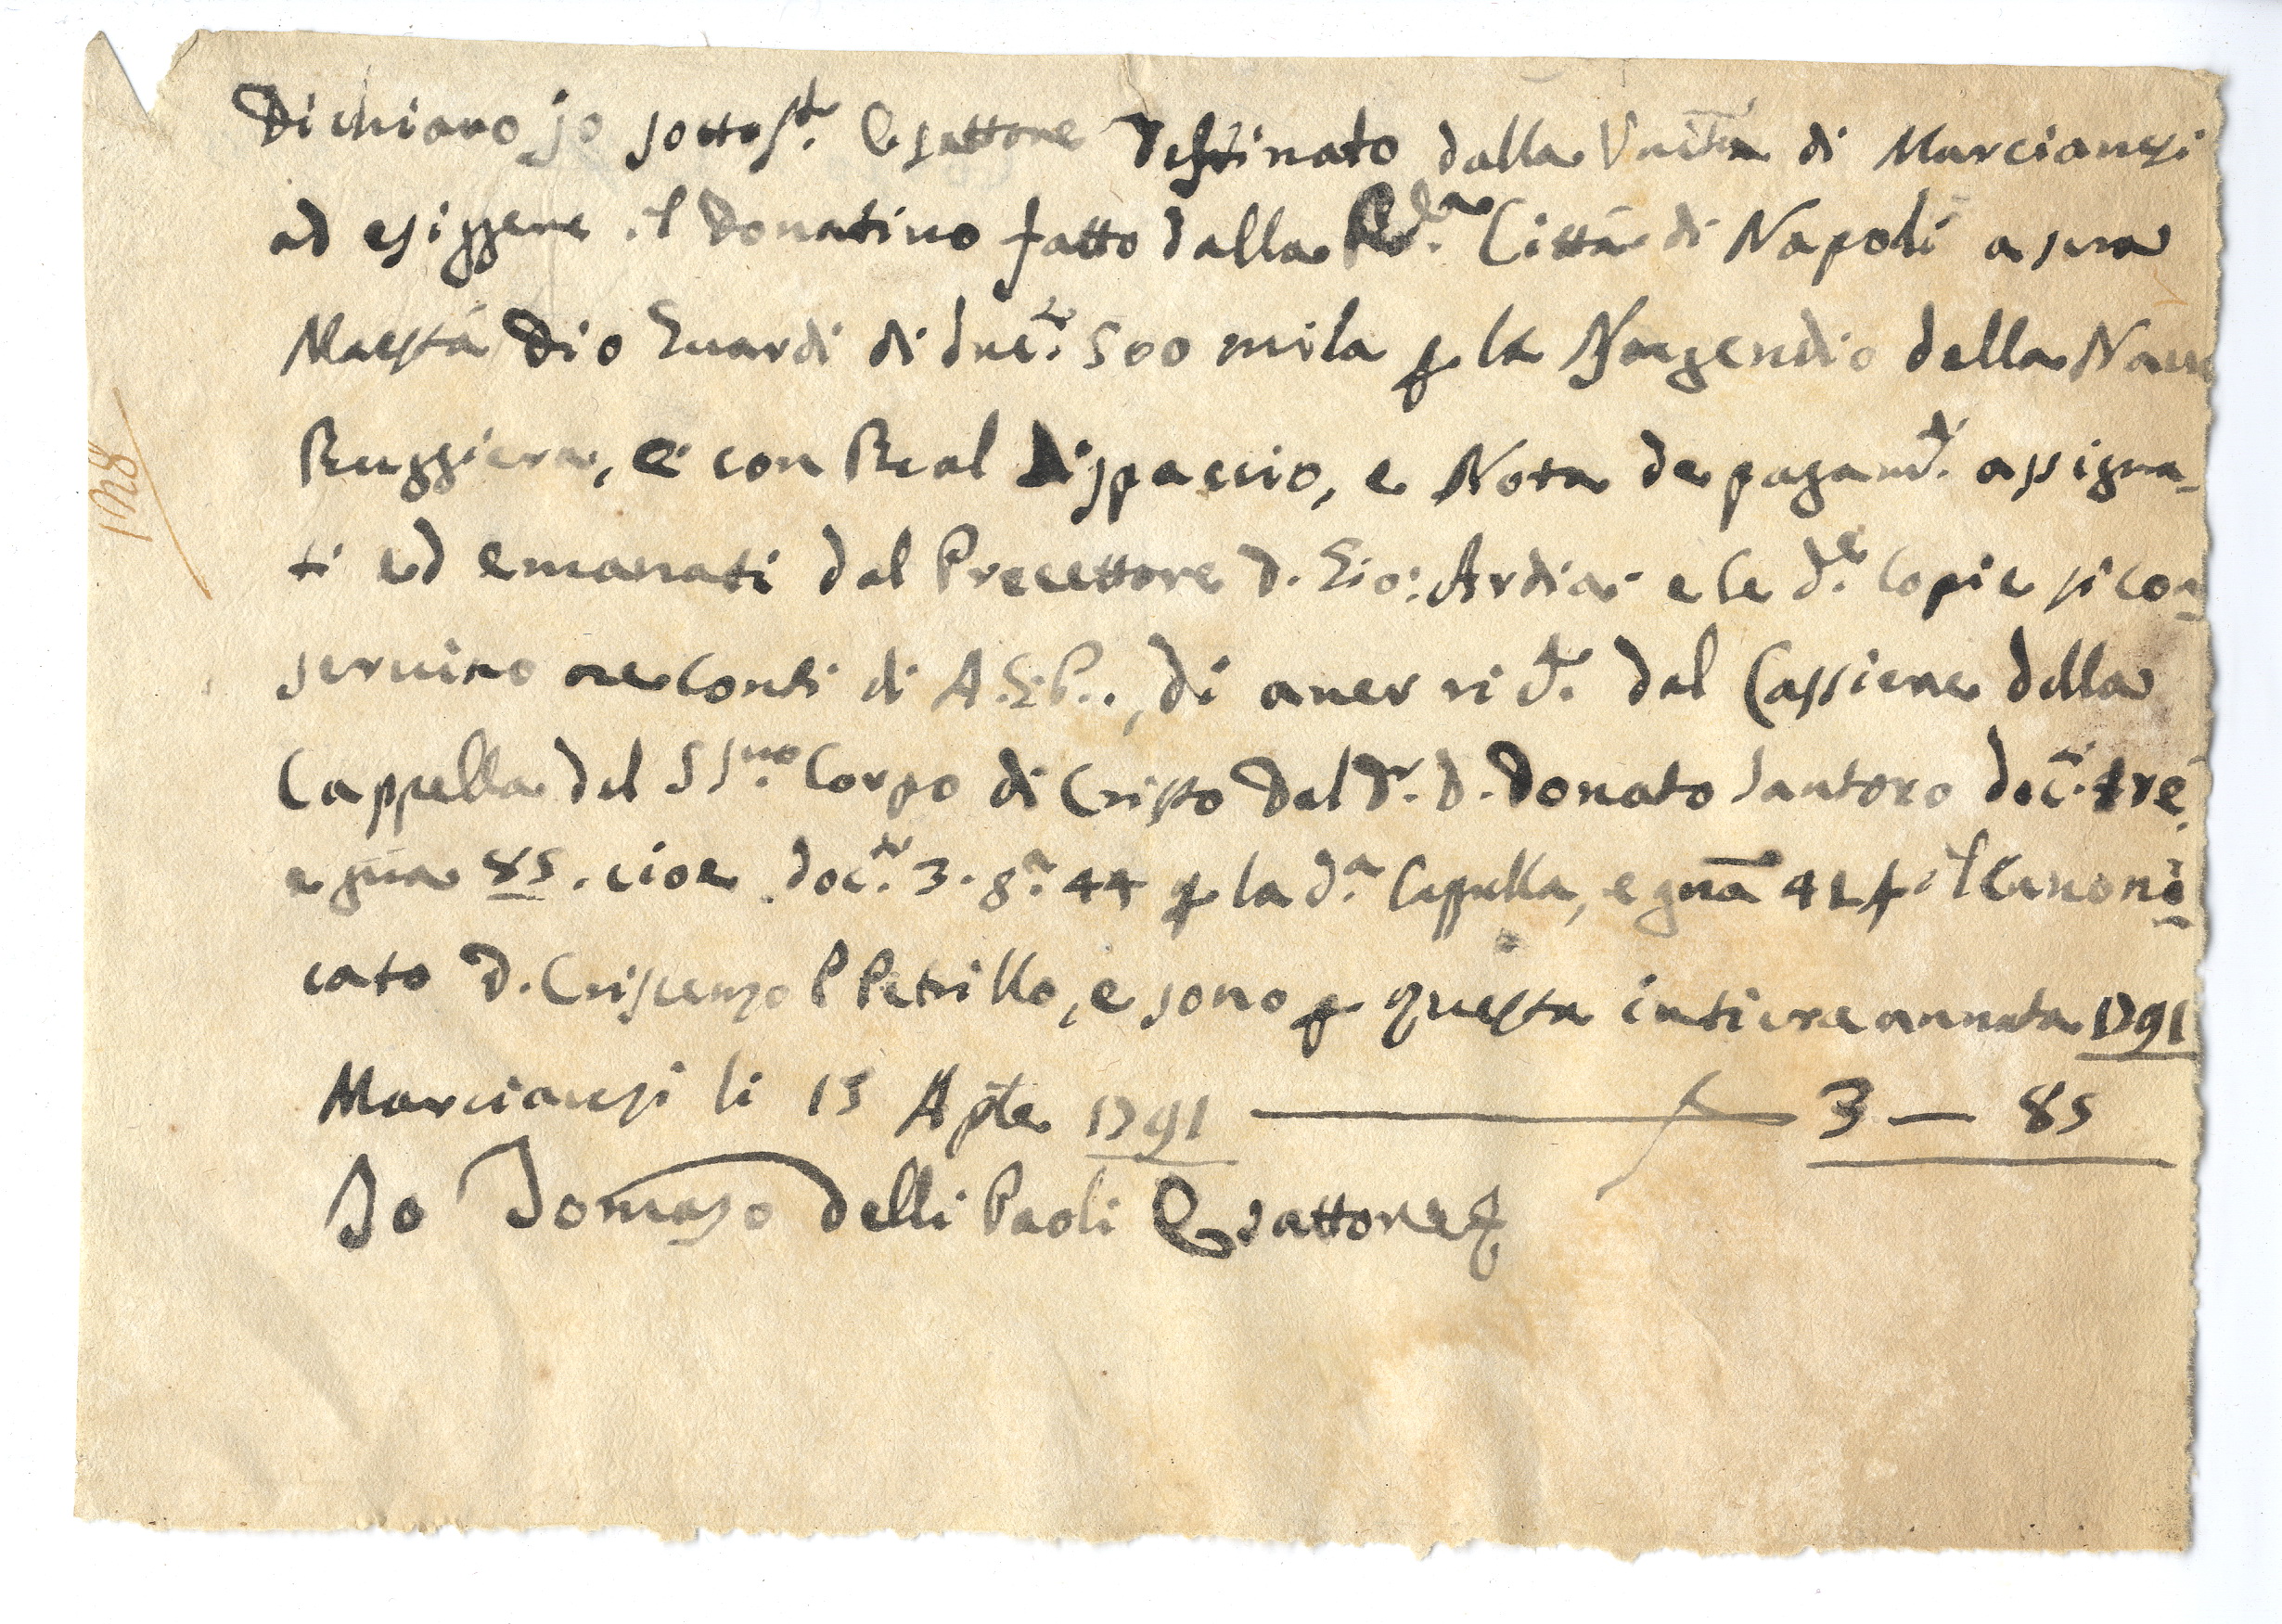 Dichiaro jo sottost. Esattore destinato dalla Unità di Marcianesi
ad esiggere il Donativo fatto dalla Città di Napoli a sua
Maestà Dio Guardi di duc.ti 500 mila p la della Nave
Ruggiera, e con Real dispaccio, e Nota de pagam.ti assigna-
ti ed emanati dal Precettore D. Gio: Ardia e le d.e Copie si con-
servino ne Conti di A.G.P., di aver ri d.to dal Cassiere della
Cappella del SS.mo Corpo di Cristo dal D.r D. Donato Santoro doc.ti tre
e gna 85. cioe doc.ti 3. g.a 44 p la d.a Cappella, e gna 41 p il Canoni-
cato D. Criscenzo Petrillo, e sono p questa intiera annata 1791
Marcianesi li 15 Aple 1791 3 — 85
Io Tomaso delli Paoli Esattore